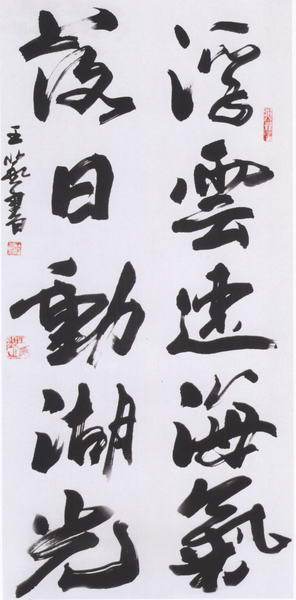 浮雲連海氣
落日動湖光
王 書